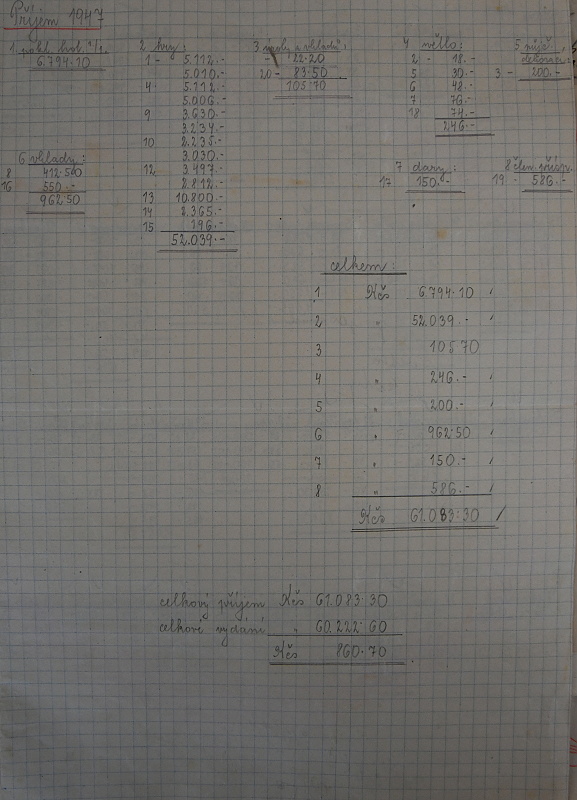 Příjem 1947
1. pokl. hot. 1/1.
6.794·10
2 hry:
1 - 5.112.-
5.010.-
4 5.112.-
5.006.-
9 3.630.-
3.234.-
10 2.235.-
3.030.-
12 3.497.-
2.812.-
13 10.800.-
14 2.365.-
15 196.-
52.039.-
3 úroky z vkladů:
- 22·20
20- 83·50
105·70
4 světlo:
2 - 18.-
5 30.-
6 48.-
7 76.-
18 74.-
246.-
5 půjč.
dekorací:
3 - 200.-
6 vklady:
8 412·50
16 550.-
962·50
7 dary:
17 150.-
8 člen. přísp.
19 - 586.-
celkem:
1 Kčs 6794·10
2 " 52.039.-
3 105 70
4 " 246.-
5 " 200.-
6 " 962·50
7 " 150.-
8 " 586.-
Kčs 61.083·30
celkový příjem Kčs 61.083·30
celkové vydání " 60.222·60
Kčs 860·70